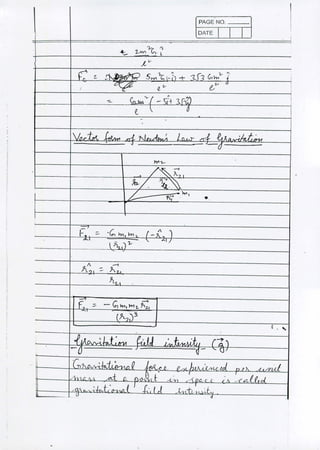 PAGE NO.
DATE
2m²G î
l²
F = 5m²G(-î) + 3√3 Gm² ĵ
l² l²
= Gm² (-5î + 3√3 ĵ)
l
Vector form of Newton's Law of Gravitation
m₂
r₂₁
r₂
m₁
r₁
F₂₁ = G m₁ m₂ (-r̂₂₁)
(r₂₁)²
r̂₂₁ = r₂₁
r₂₁
F₂₁ = - G m₁ m₂ r₂₁
(r₂₁)³
Gravitation field intensity (g)
Gravitational force experienced per unit
mass at a point in space is called
gravitational field intensity.